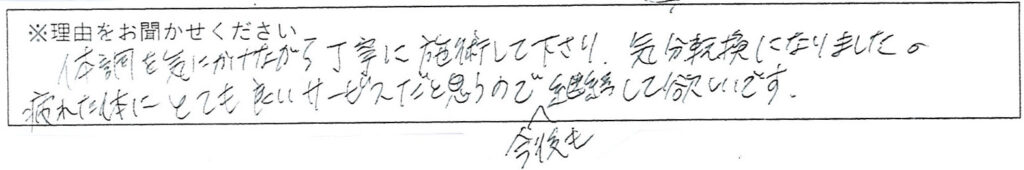 ※理由をお聞かせください
体調を気にかけながら丁寧に施術して下さり、気分転換になりました。
疲れた体にとても良いサービスだと思うので今後も継続して欲しいです。